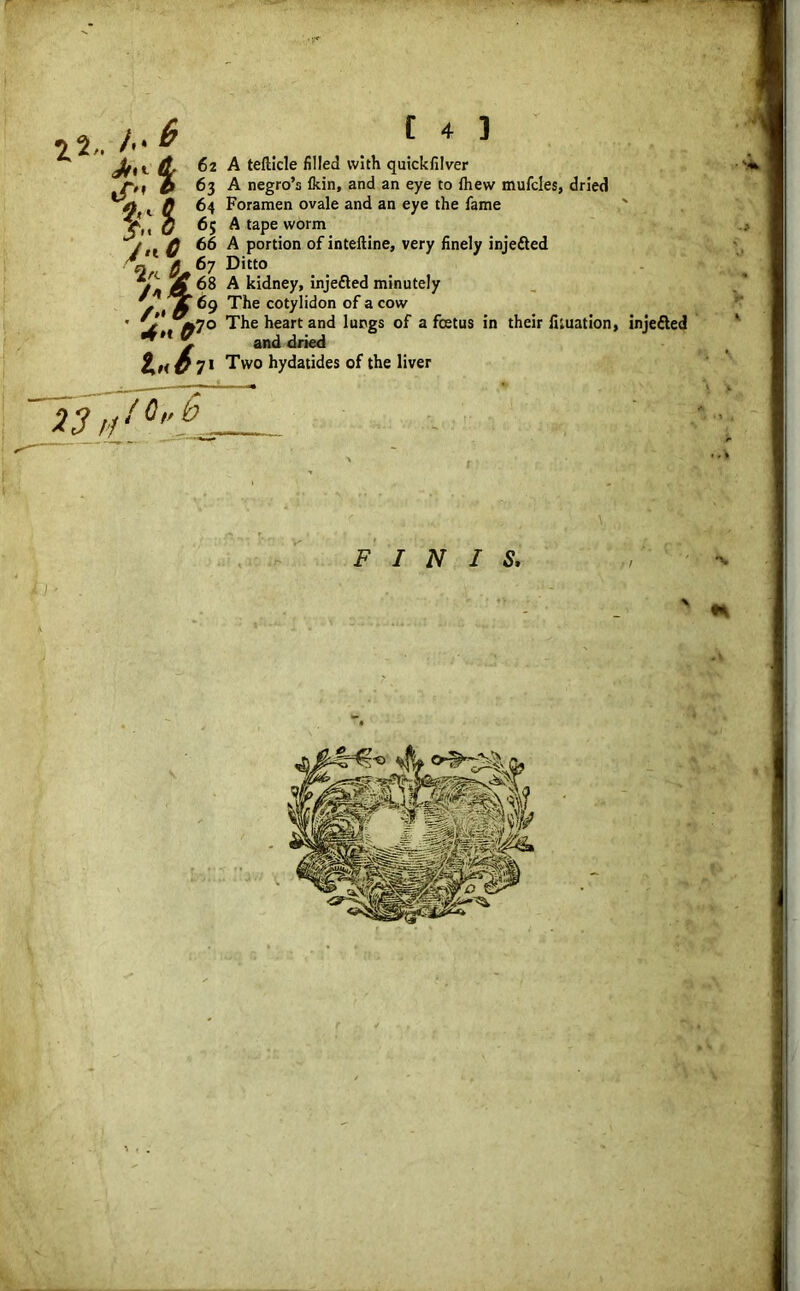 [ 4 ]
22,, 1,, 6
62 A teſticle filled with quickſilver
63 A negro’s ſkin, and an eye to ſhew muſcles, dried
64 Foramen ovale and an eye the ſame
65 A tape worm
66 A portion of inteſtine, very finely injected
67 Ditto
68 A kidney, injected minutely
69 The cotylidon of a cow
70 The heart and lungs of a fœtus in their ſituation, injected
and dried
2,, 6 71 Two hydatides of the liver
23,, 10,, 6
F I N I S.